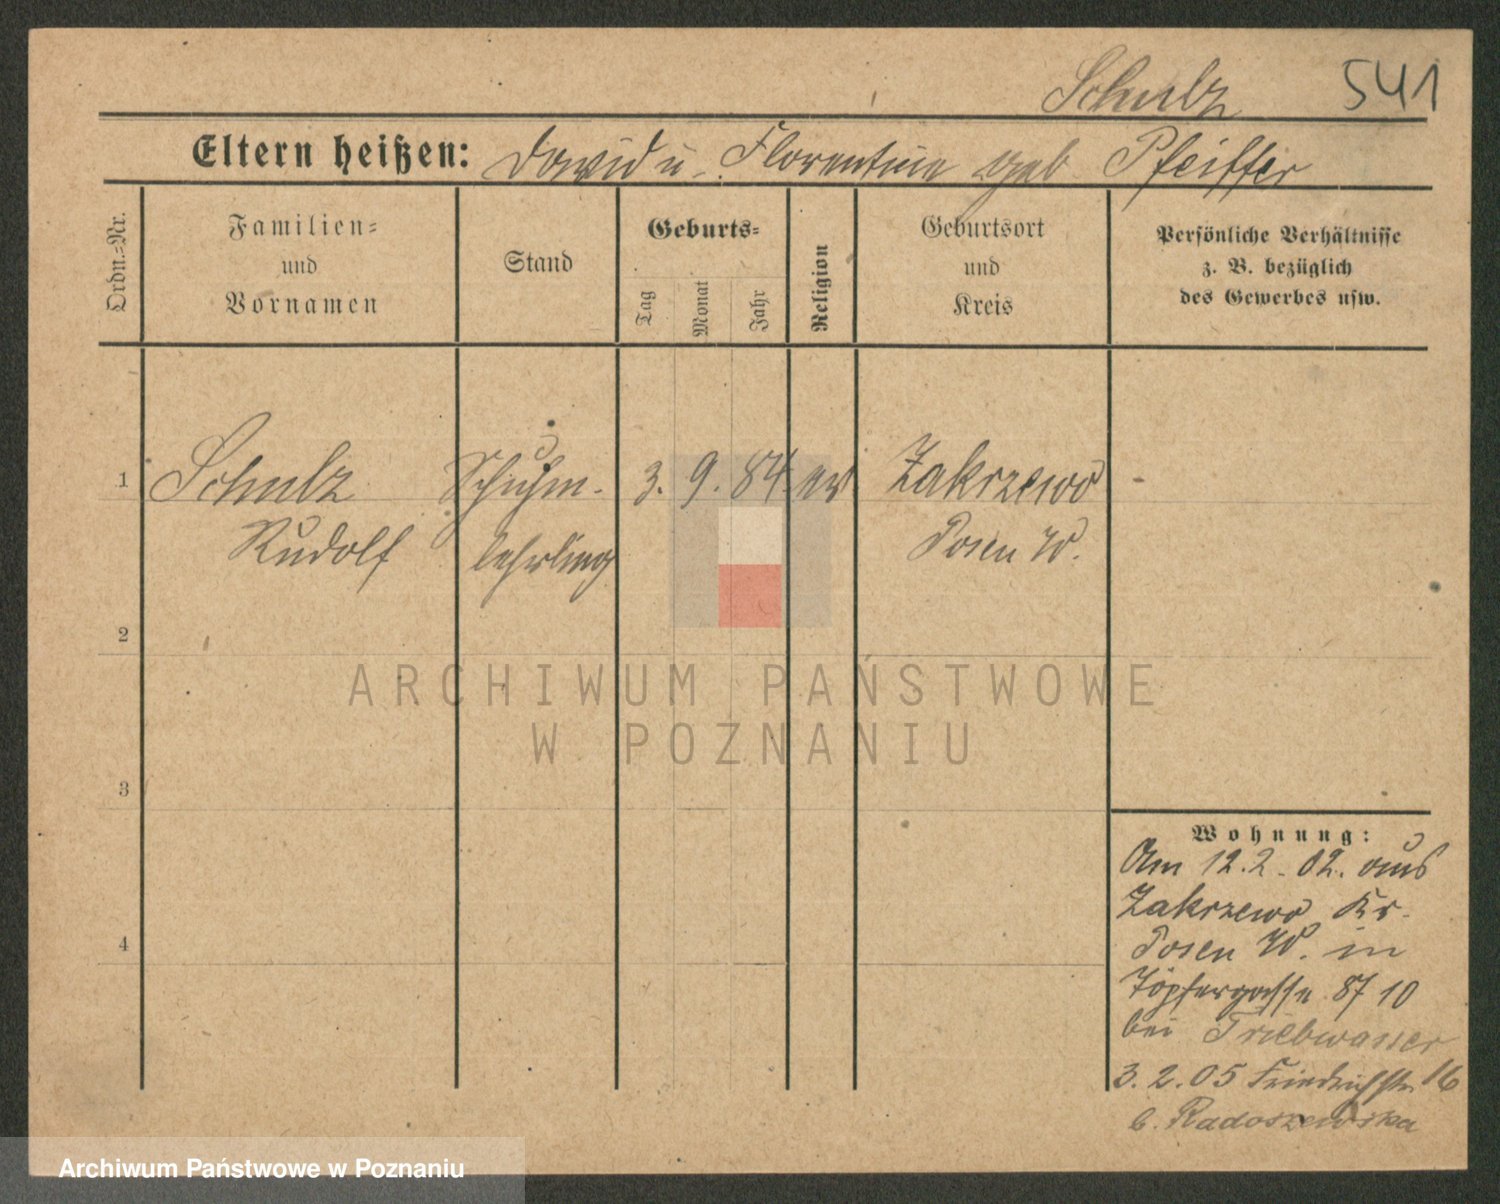 Schulz 541
Eltern heißen: David u. Florentine geb. Pfeiffer
Ordn.=Nr.
Familien=
und
Vornamen
Stand
Geburts=
Tag
Monat
Jahr
Religion
Geburtsort
und
Kreis
Persönliche Verhältnisse
z. B. bezüglich
des Gewerbes usw.
1 Schulz Schuhm- 3. 9. 84. ev Zakrzewo -
Rudolf lehrling Posen W.
2
3
4
Wohnung:
Am 12.2.02. aus
Zakrzewo Kr.
Posen W. in
Töpfergasse 10
bei Triebwasser
3.2.05 Friedrichstr. 16
b. Radoszewska
ARCHIWUM PAŃSTWOWE
W POZNANIU
Archiwum Państwowe w Poznaniu